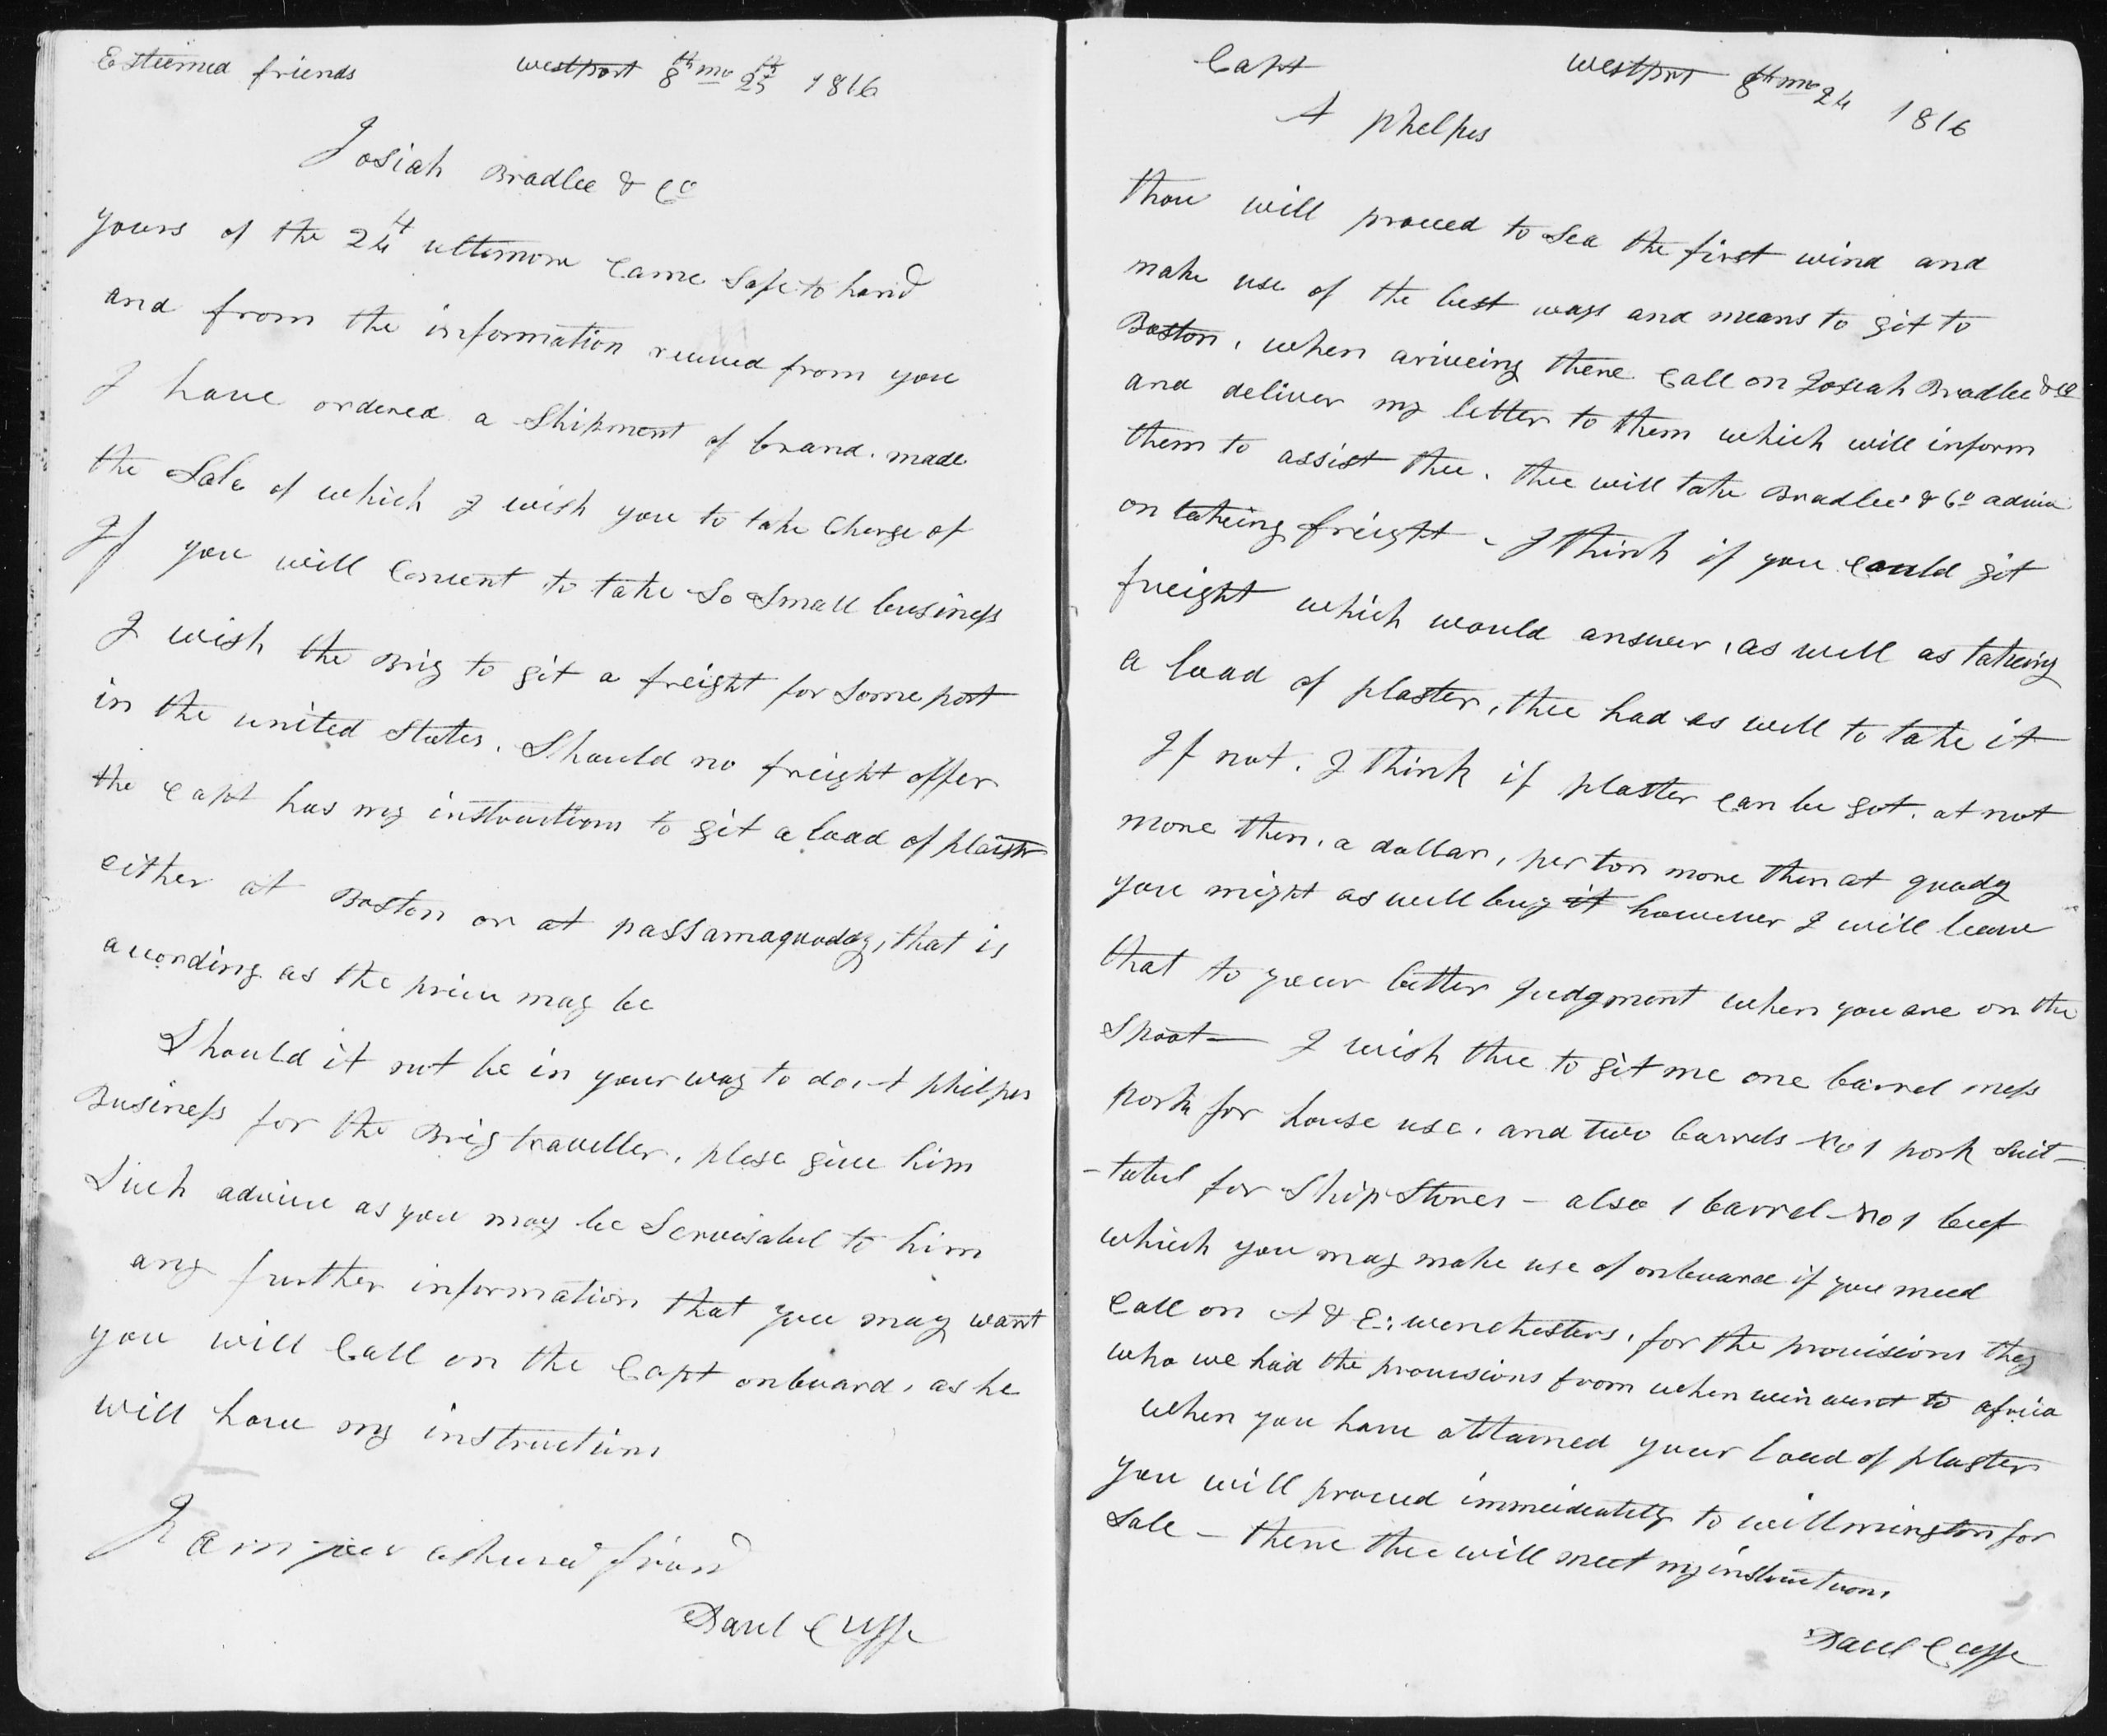 Esteemed friends westport 8th mo 25th 1816
Josiah Bradlee & Co
yours of the 24th ultimore Came Safe to hand
and from the information receued from you
I have ordered a Shipment of brand. made
the Sale of which I wish you to take Charge of
If you will Consent to take So Small business
I wish the Brig to git a freight for Some port
in the united States. Should no freight offer
the Capt has my instructions to git a load of plaistr
either at Boston or at passamaquoddy, that is
according as the price may be
Should it not be in your way to do A philps
Business for the Brig traveller, plese give him
Such advice as you may be Servisabul to him
any further information that you may want
you will Call on the Capt onbuard, as he
will have my instructions
I am your ashured friend
Paul Cuffe
Capt westport 8th mo 24 1816
A phelps
thou will proceed to Sea the first wind and
make use of the best ways and means to git to
Boston, when ariveing there Call on Josiah Bradlee & Co
and deliver my letter to them which will inform
them to assist thee. thee will take Bradlees & Co advice
on takeing freight - I think if you Could git
freight which would answer, as well as takeing
a load of plaster, thee had as well to take it
If not. I think if plaster Can be got. at not
more then. a dollar, per ton more then at quody
you might as well buy it however I will leave
that to your better Judgment when you are on the
Spoot — I wish thee to git me one barrel mess
pork for house use. and two barrels No 1 pork Suit-
-tabul for Ship Stores - also 1 barrel No 1 beef
which you may make use of onbuard if you need
Call on A & E. wenchesters, for the provisions they
who we had the provisions from when wein went to africa
when you have obtained your load of plaster
you will proceed immeideatily to willmington for
Sale - there thee will meet my instructions
Paul Cuffe